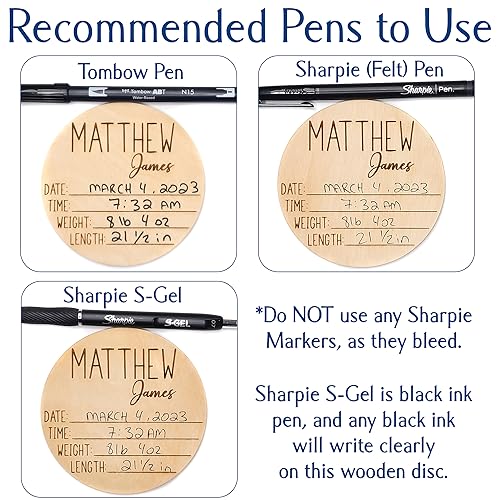 Recommended Pens to Use
Tombow Pen
Tombow ABT N15
Water-Based
MATTHEW
James
DATE: MARCH 4, 2023
TIME: 7:32 AM
WEIGHT: 8lb 4oz
LENGTH: 21 1/2 in
Sharpie (Felt) Pen
Sharpie. Pen.
MATTHEW
James
DATE: MARCH 4, 2023
TIME: 7:32 AM
WEIGHT: 8lb 4oz
LENGTH: 21 1/2 in
Sharpie S-Gel
Sharpie. S-GEL 0.7
MATTHEW
James
DATE: MARCH 4, 2023
TIME: 7:32 AM
WEIGHT: 8lb 4oz
LENGTH: 21 1/2 in
*Do NOT use any Sharpie
Markers, as they bleed.
Sharpie S-Gel is black ink
pen, and any black ink
will write clearly
on this wooden disc.